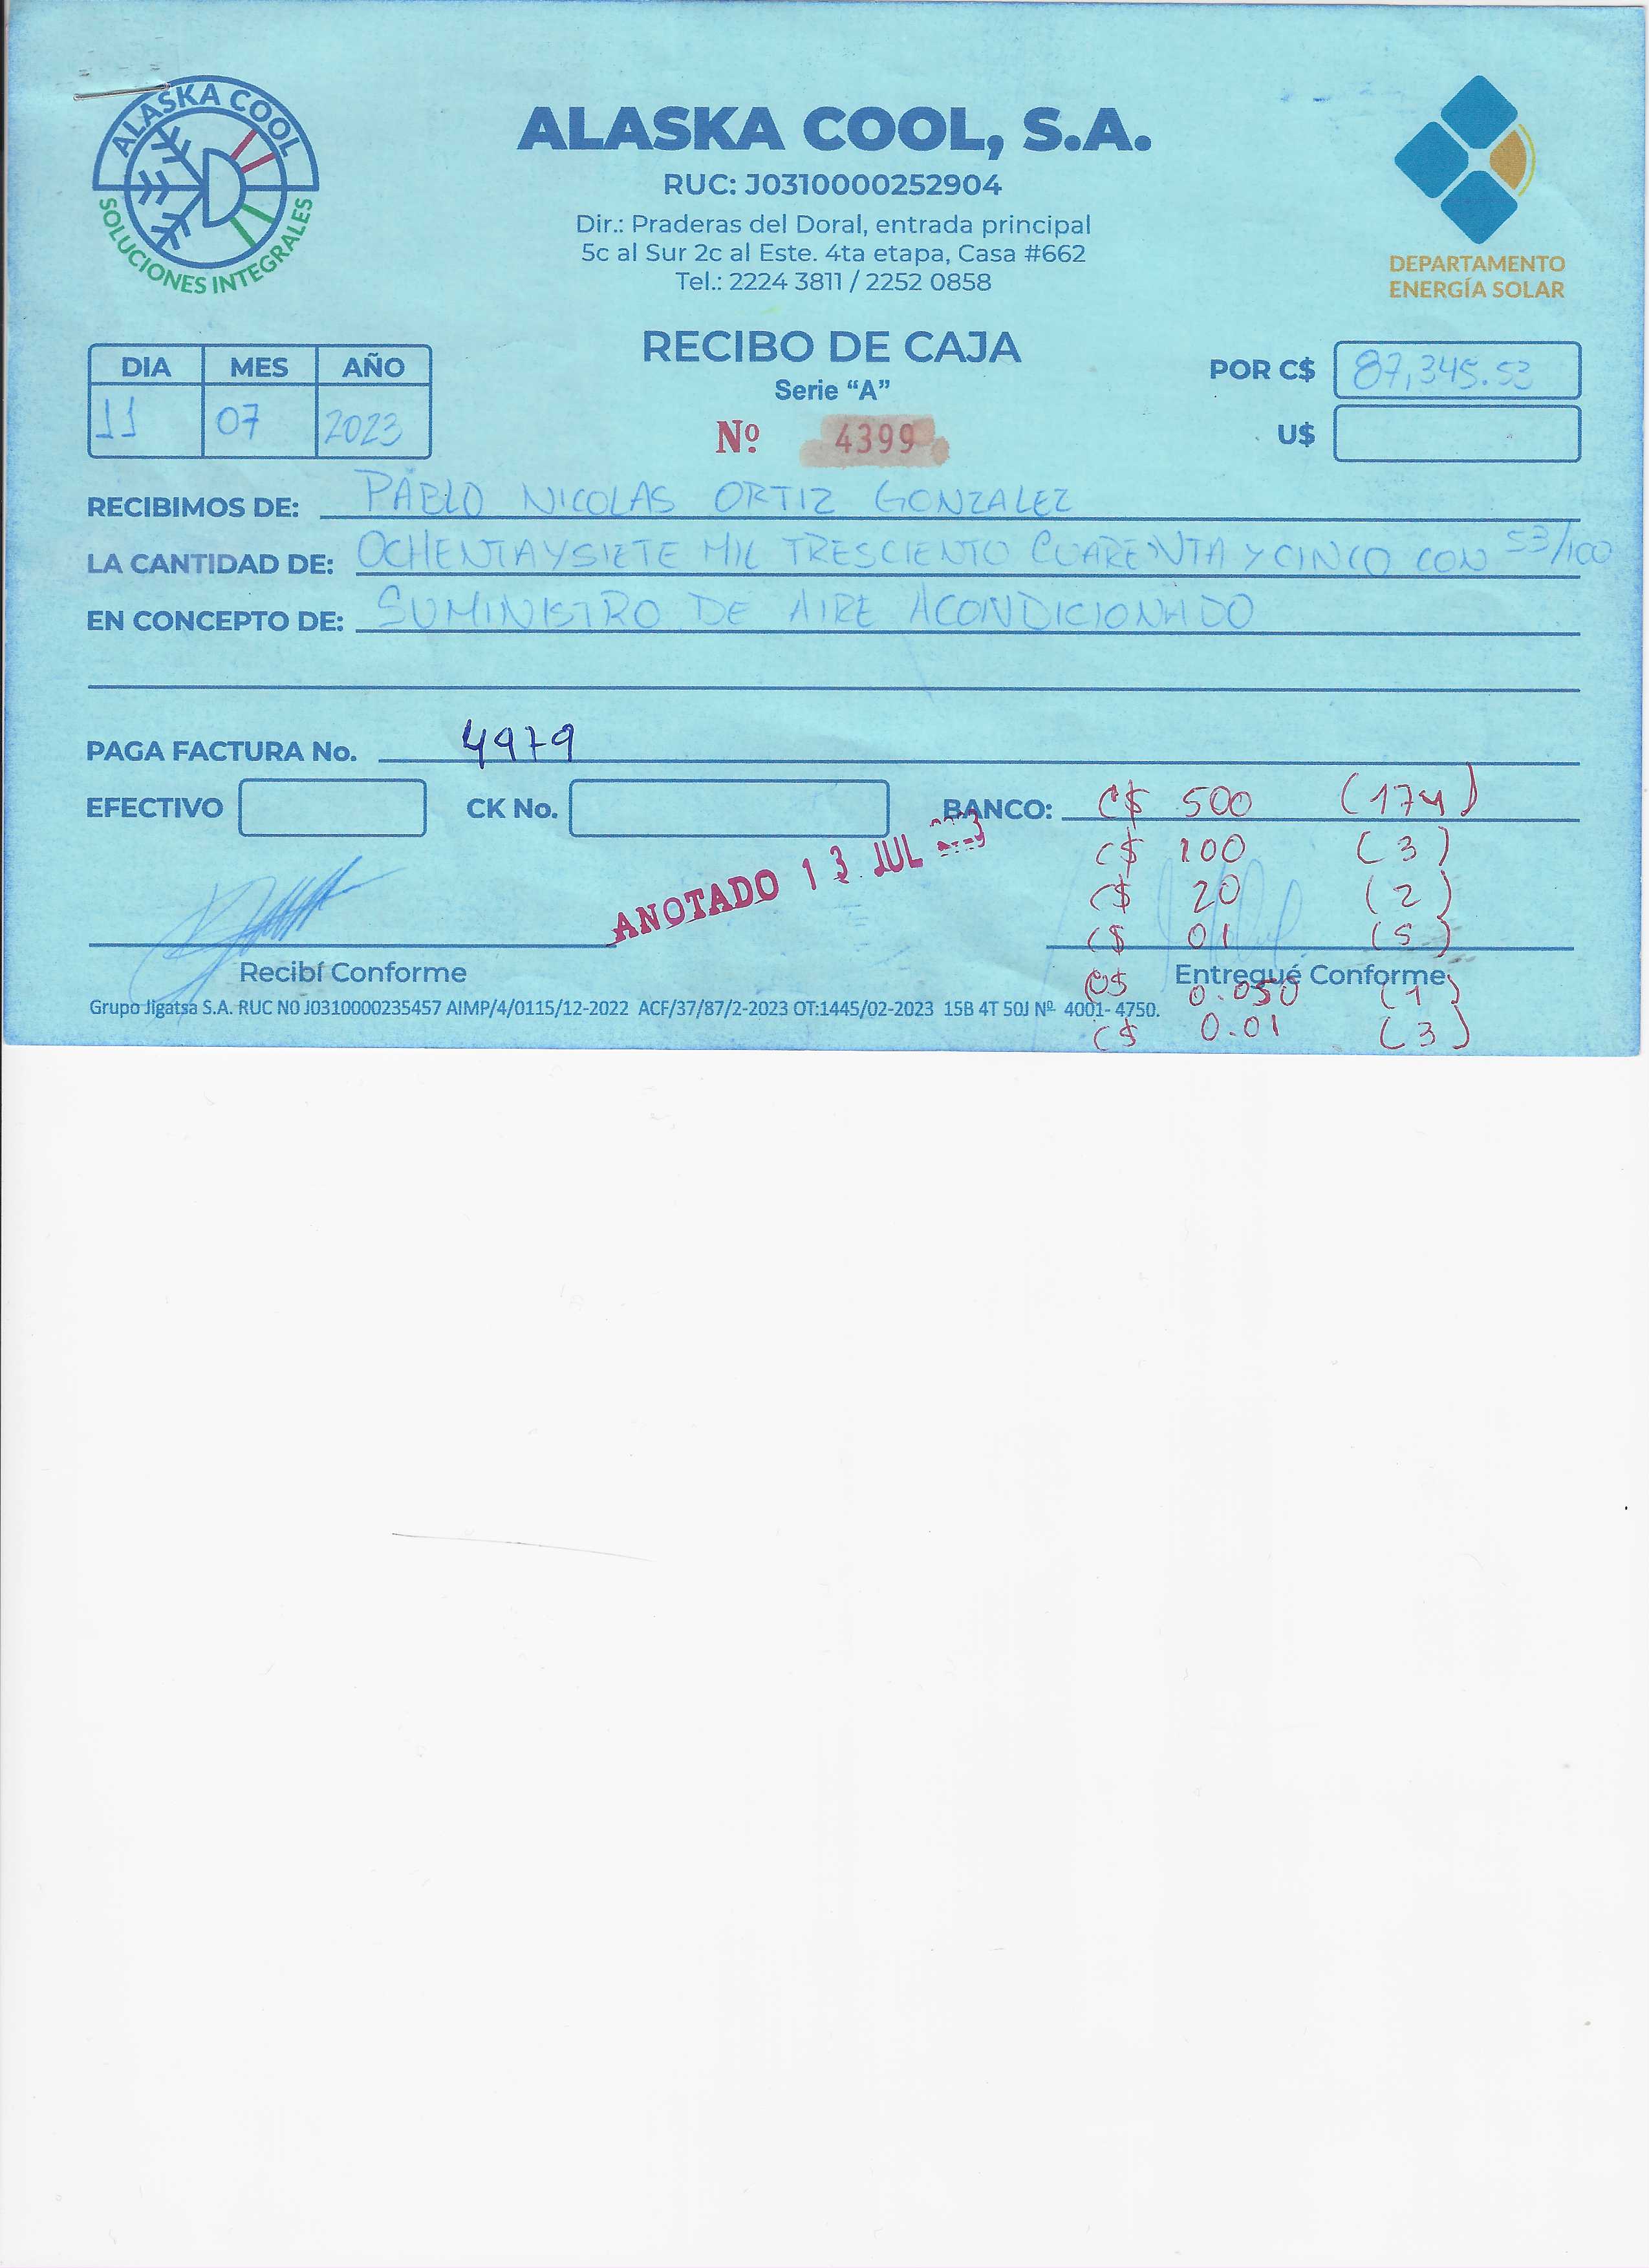 ALASKA COOL
SOLUCIONES INTEGRALES
ALASKA COOL, S.A.
RUC: J0310000252904
Dir.: Praderas del Doral, entrada principal
5c al Sur 2c al Este. 4ta etapa, Casa #662
Tel.: 2224 3811 / 2252 0858
DEPARTAMENTO
ENERGÍA SOLAR
RECIBO DE CAJA
Serie “A”
Nº 4399
DIA MES AÑO
11 07 2023
POR C$ 87,345.53
U$
RECIBIMOS DE: PABLO NICOLAS ORTIZ GONZALEZ
LA CANTIDAD DE: OCHENTA Y SIETE MIL TRESCIENTO CUARENTA Y CINCO CON 53/100
EN CONCEPTO DE: SUMINISTRO DE AIRE ACONDICIONADO
PAGA FACTURA No. 4979
EFECTIVO CK No. BANCO: C$ 500 (174)
C$ 100 (3)
C$ 20 (2)
C$ 01 (5)
ANOTADO 13 JUL
Recibí Conforme
Entregué Conforme
C$ 0.050 (1)
Grupo Jigatsa S.A. RUC N0 J0310000235457 AIMP/4/0115/12-2022 ACF/37/87/2-2023 OT:1445/02-2023 15B 4T 50J Nº 4001- 4750.
C$ 0.01 (3)